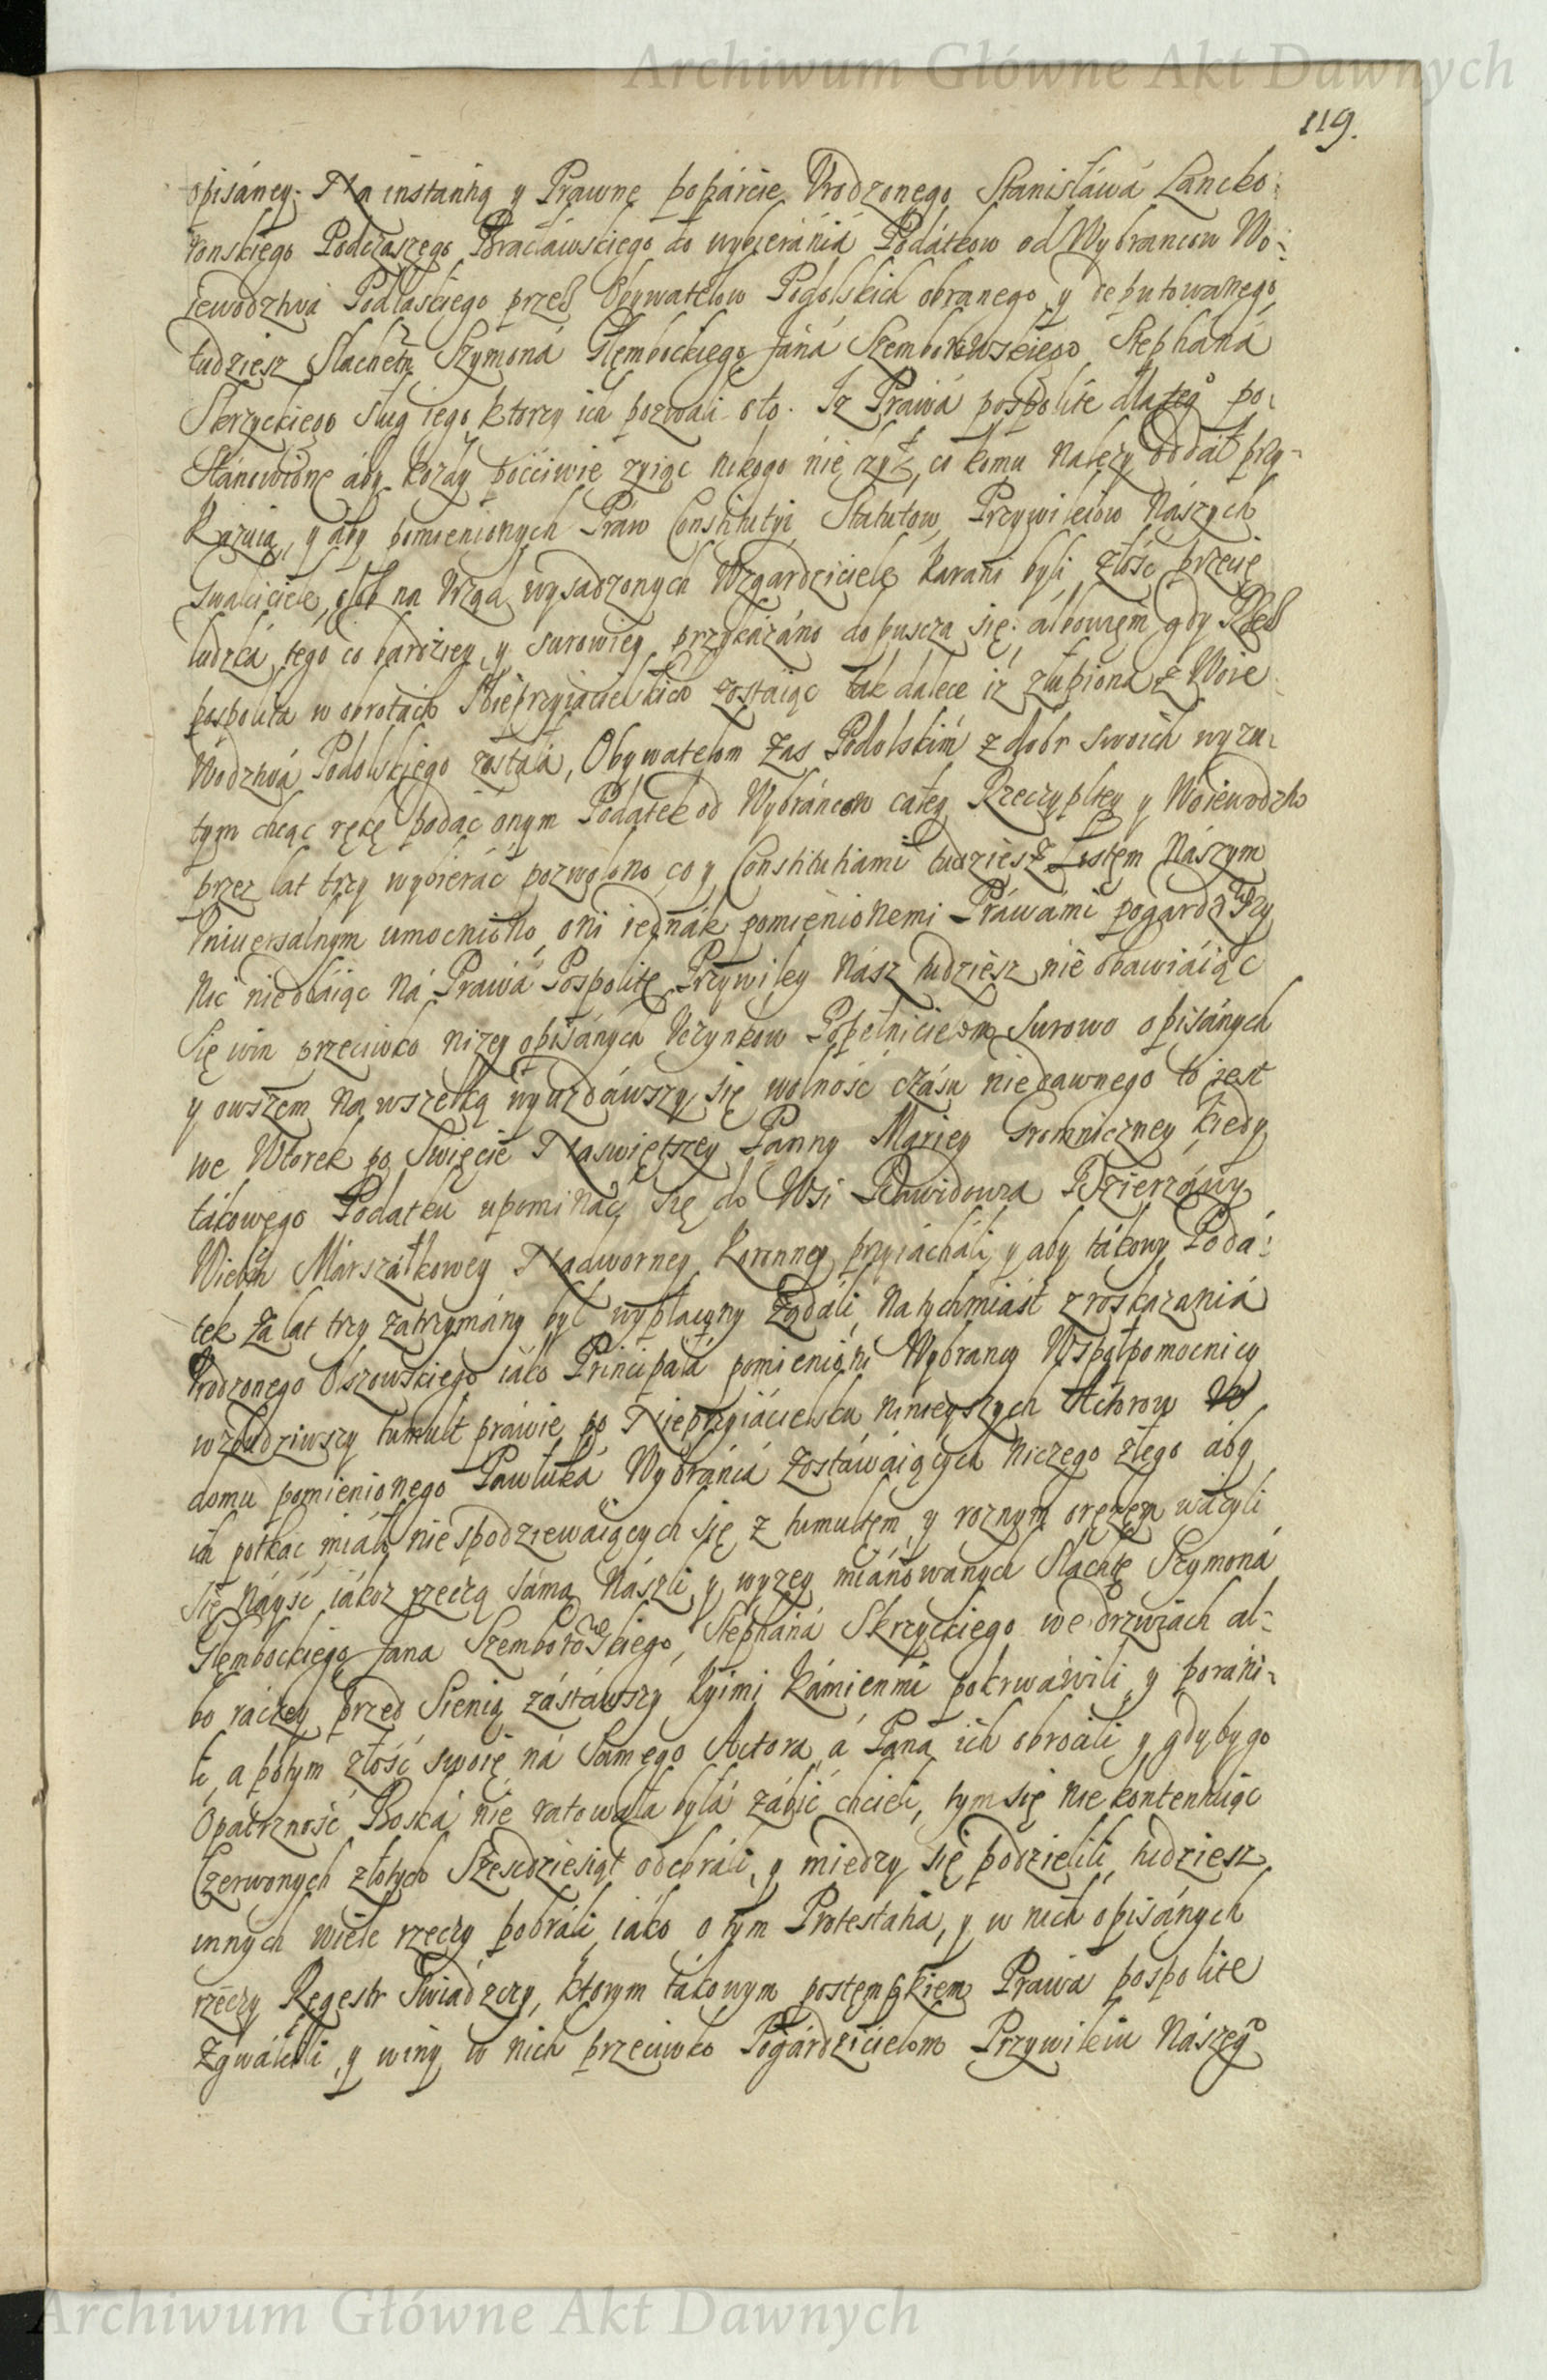 Archiwum Główne Akt Dawnych
119.
opisáney. Na instantią y Prawne popárcie Vrodzonego Stanisłáwá Lancko:
ronskiego Podczaszego Bracławskiego do wybieránia Podátkow od Wybrancow Wo:
iewodztwá Podlaskiego przez Obywatelow Podolskich obranego y deputowanego
tudziesz Slachetn Szymoná Glęmbockiego Jáná Szemborowskiego Stephaná
Skrzyckiego sług iego ktorzy ich pozwali oto. Iz Práwá pospolite dlateg° po:
stánowione áby kozdy poććiwie zyiąc nikogo nie co komu nalezy oddał przy-
kazuią, y áby pomienionych Praw Constitutyi Statutow, Przywileiow Nászych
Gwałciciele, osob na Vrząd wysadzonych Wzgardziciele karani byli złość przecię
ludzka tego co bardziey y surowiey przykázáno dopuszcza się; álbowięm gdy Rzecz
pospolita w obrotách Nieprzyiacielskich zostáiąc tak dalece iż złupioná z Woie
wodztwá Podolskiego zostałá, Obywatelom zas Podolskim z dobr swoich wyzu:
tym chcąc rękę podáć onym Podatek od Wybráncow całey Rzeczyplttey y Woiewodztw
przez lat trzy wybieráć pozwolono, co y Constitutiami tudziesz Listem Nászym
Vniwersalnym umocniono, oni iednák pomienionemi Práwami pogardziwszy
Nic niedbáiąc ná Práwá Pospolite Przywiley Nász tudziesz nie obawiáiąc
Się win przeciwko nizey opisánych Vczynkow Popełnicielom surowo opisánych
y owszem na wszelką wyuzdáwszy się wolność czásu niedawnego to jest
we Wtorek po Swięcie Naswiętszey Panny Mariey Gromniczney kiedy
tákowego Podatku upominác się do Wsi Dawidowa Dzierzáwy
Wielm Márszałkowey Nadworney Koronney przyiácháli y aby tákowy Podá:
tek za lat trzy zatrzymány był wypłacony Ządáli, natychmiást z roskazaniá
Vrodzonego Olszowskiego iako Principałá pomienioni Wybrancy Współpomocnicy
wzbudziwszy tumult práwie po Nieprzyiácielsku ninieyszych Aktorow w
domu pomienionego Pawluká Wybráncá zostáwáiących niczego złego áby
ich potkác miáło niespodziewáiących się z tumultęm y roznym orężęm wáżyli
się náyść iákoz rzeczą sámą Nászli y wyzey miánowanych Slachtę Szymoná
Glęmbockiego Jana Szemborowskiego, Stepháná Skrzyckiego we drzwiach al-
bo ráczey przed Sienią zástáwszy kyimi kámienmi pokrwáwili y poráni-
li, a potym złość swoię ná Samego Actora á Paná ich obrocili y gdyby go
Opatrzność Boská nie ratowałá byłá zábić chcieli, tym się nie kontentuiąc
Czerwonych złotych Szescdziesiąt odebráli y miedzy się podzielili tudziesz
innych wiele rzeczy pobráli iáko o tym Protestátia, y w nich opisánych
rzeczy Regestr Swiádczy, ktorym tákowym postempkiem Prawá pospolite
zgwałcili y winy w nich przeciwko Pogárdzicielom Przywileiu Nászeg°
Archiwum Główne Akt Dawnych